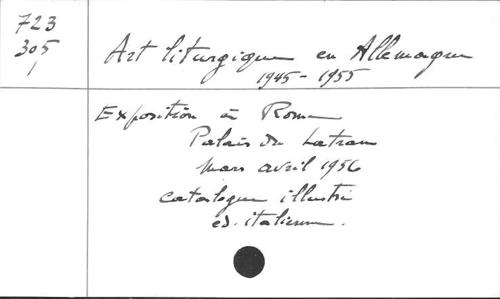 723
305
Art liturgique en Allemagne
1945 - 1955
Exposition à Rome
Palais du Latran
mars avril 1956
catalogue illustré
éd. italienne.